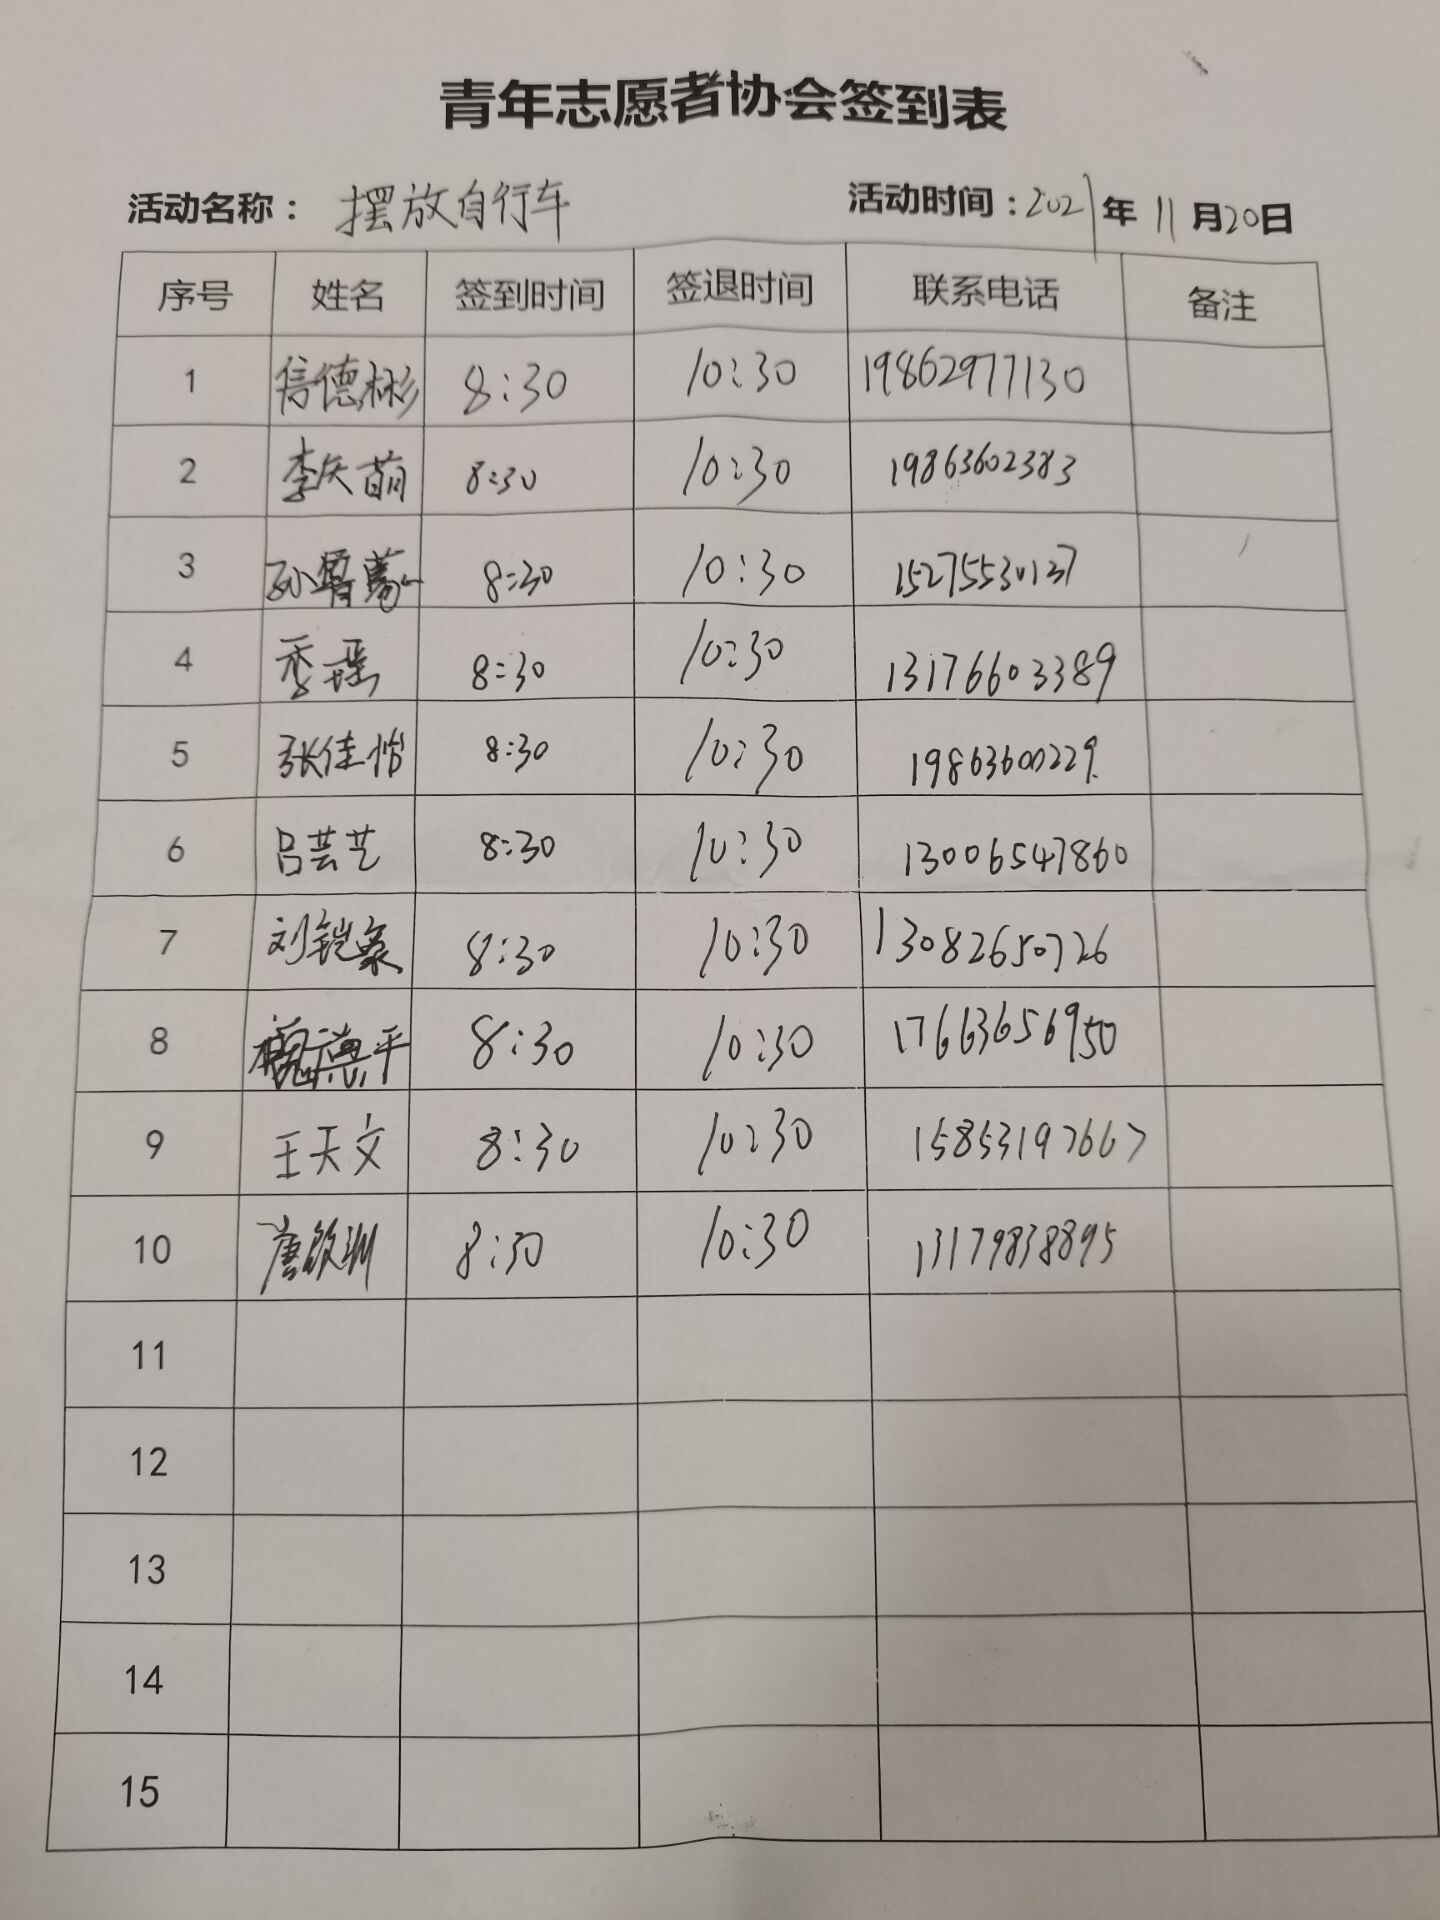 青年志愿者协会签到表
活动名称： 摆放自行车 活动时间：2021年11月20日
序号 姓名 签到时间 签退时间 联系电话 备注
1 信德彬 8:30 10:30 19862977130
2 李矢萌 8:30 10:30 19863602383
3 孙 8:30 10:30 15275530137
4 季瑶 8:30 10:30 13176603389
5 张佳怡 8:30 10:30 19863600229
6 吕芸艺 8:30 10:30 13006547860
7 刘铠豪 8:30 10:30 13082650726
8 魏德平 8:30 10:30 17663656950
9 王天文 8:30 10:30 15853197667
10 唐 8:30 10:30 13179838895
11
12
13
14
15